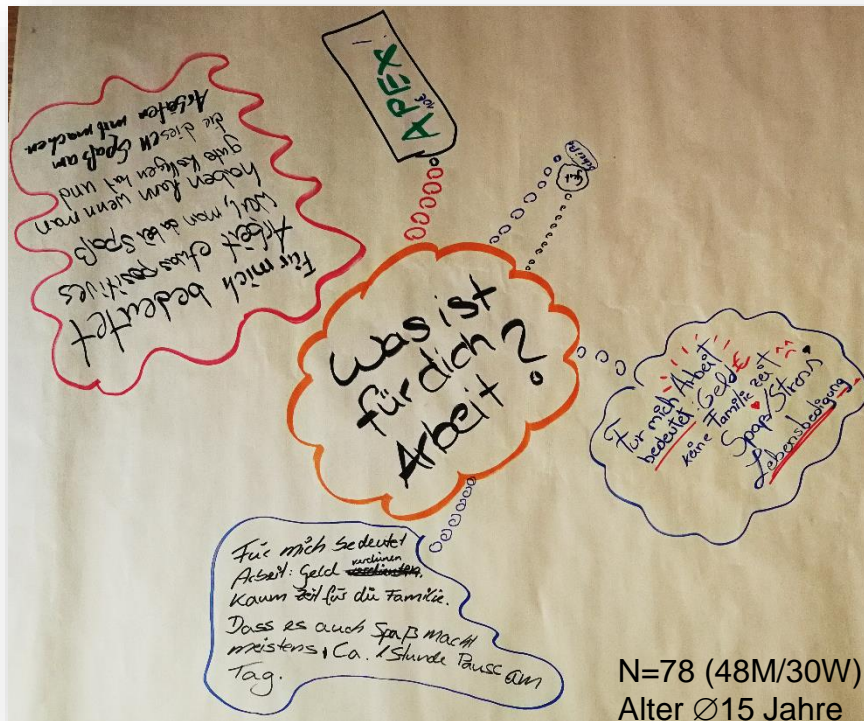 Was ist
für dich
Arbeit?
APEX!
10€
Scheiße
gut
Für mich bedeutet
Arbeit etwas positives
weil, man dabei Spaß
haben kann wenn man
gute Kollegen hat und
die diesen Spaß am
Arbeiten mit machen
Für mich Arbeit
bedeutet: Geld €
keine Familie zeit ^^
Spaß/Stress
Lebensbedigung
Für mich bedeutet
Arbeit: Geld verdinen
Kaum Zeit für die Familie.
Dass es auch Spaß macht
meistens, Ca. 1 Stunde Pause am
Tag.
N=78 (48M/30W)
Alter Ø15 Jahre